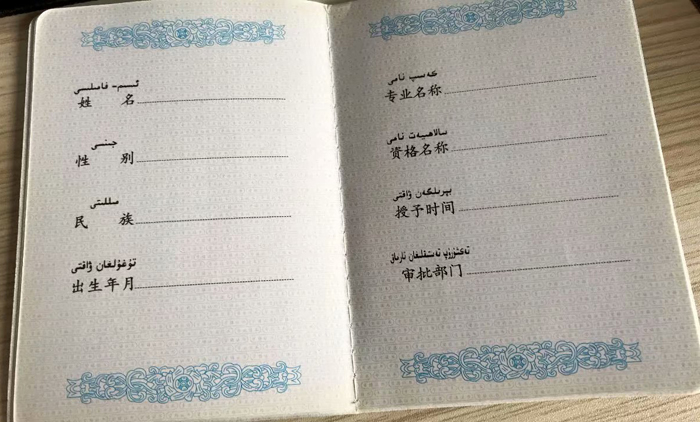 ئىسىم- فامىلىسى
姓 名
جىنسى
性 别
مىللىتى
民 族
تۇغۇلغان ۋاقتى
出生年月
كەسىپ نامى
专业名称
سالاھىيەت نامى
资格名称
بېرىلگەن ۋاقتى
授予时间
تارماق
审批部门